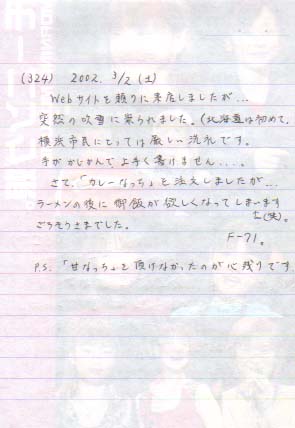 (324) 2002. 3/2 (土)
Webサイトを頼りに来店しましたが...
突然の吹雪に見舞われました。(北海道は初めて。
横浜市民にとっては厳しい洗礼です。
手がかじかんで上手く書けません....。
さて、「カレーなっち」と注文しましたが...
ラーメンの後に御飯が欲しくなってしまいます
(笑)。
ごちそうさまでした。
F-71。
P.S. 「甘なっち」を頂けなかったのが心残りです